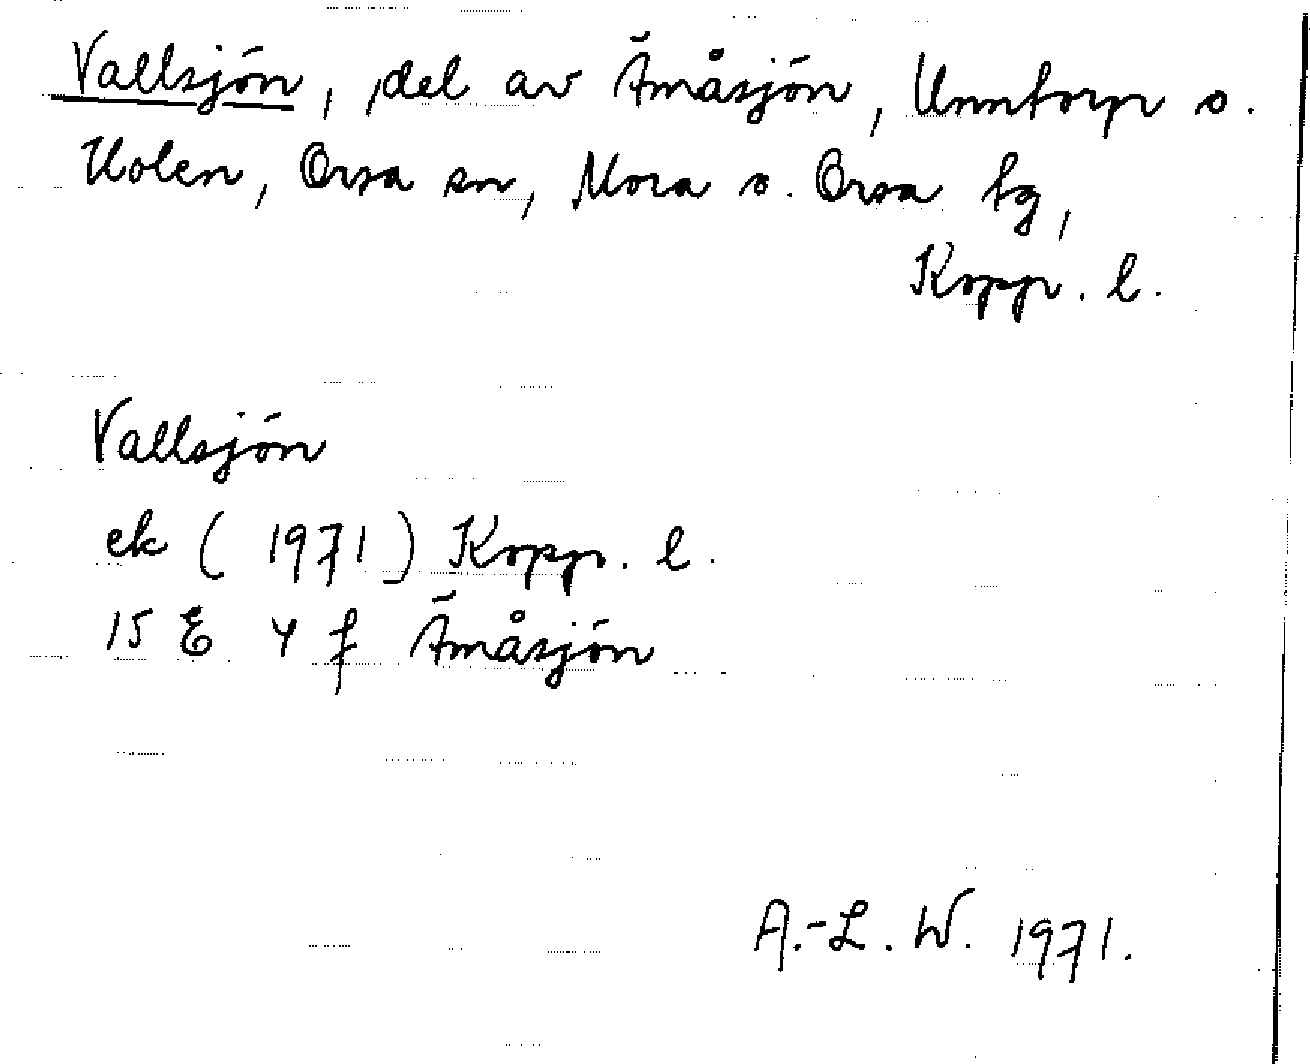 Vallsjön, del av Ämåsjön, Unntorp o.
Holen, Orsa sn, Mora o. Orsa tg,
Kopp. l.
Vallsjön
ek (1971) Kopp. l.
15 E 4 f Ämåsjön
A.-L. W. 1971.